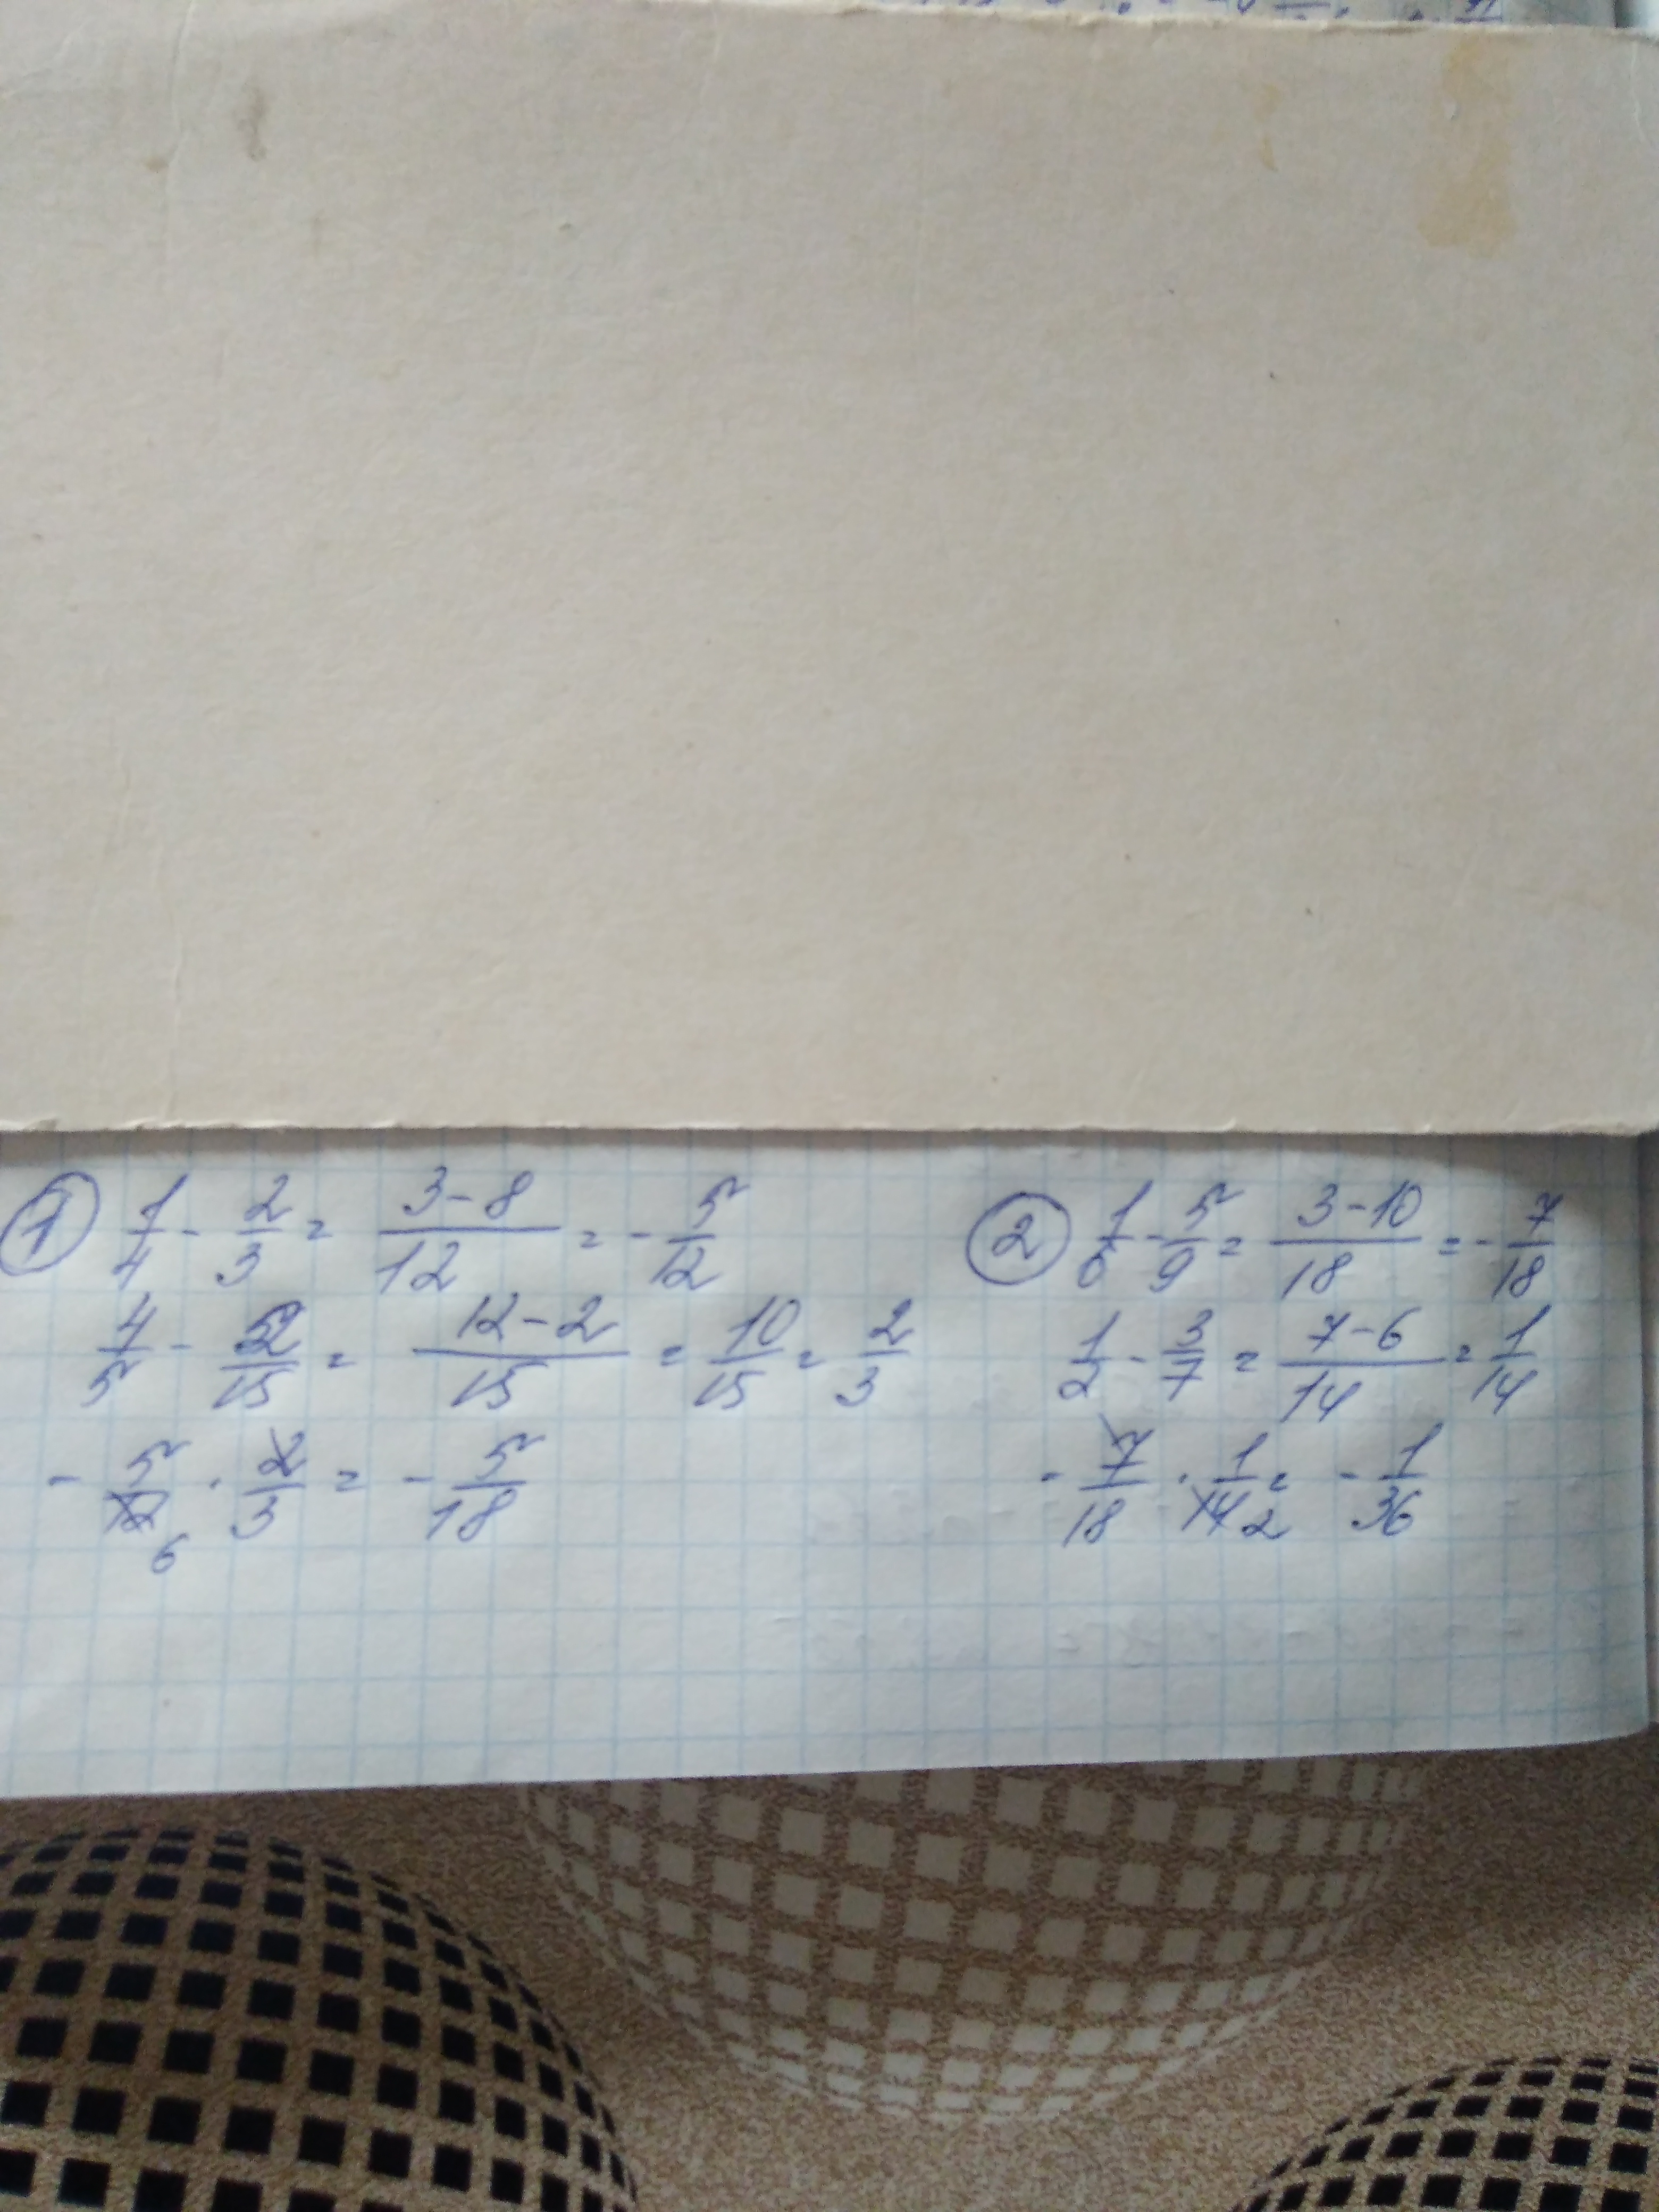 ① 1/4 - 2/3 = (3-8)/12 = - 5/12
4/5 - 2/15 = (12-2)/15 = 10/15 = 2/3
- 5/12 · 2/3 = - 5/18
6
② 1/6 - 5/9 = (3-10)/18 = - 7/18
1/2 - 3/7 = (7-6)/14 = 1/14
- 7/18 · 1/14 2 = - 1/36